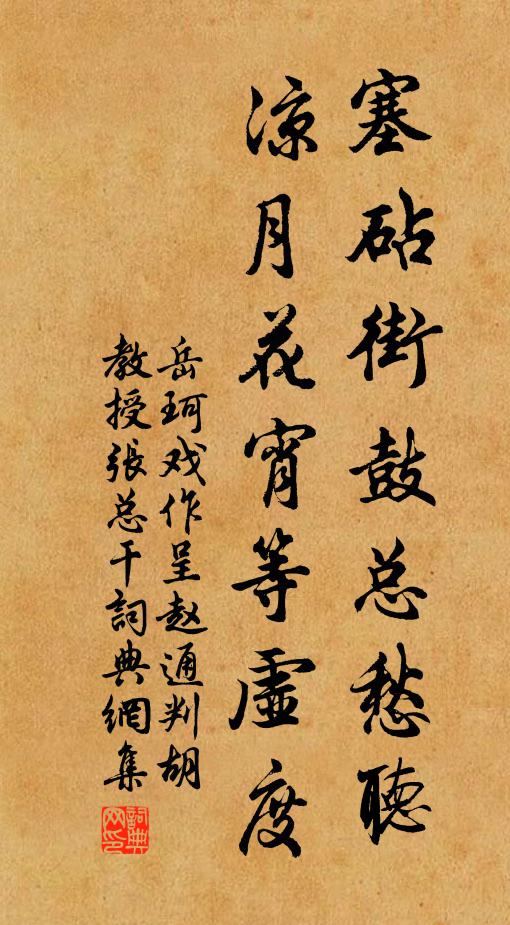 塞砧街鼓总愁聽
涼月花宵等虛度
岳珂戏作呈赵通判胡
教授張总干詞典網集
詞典网印